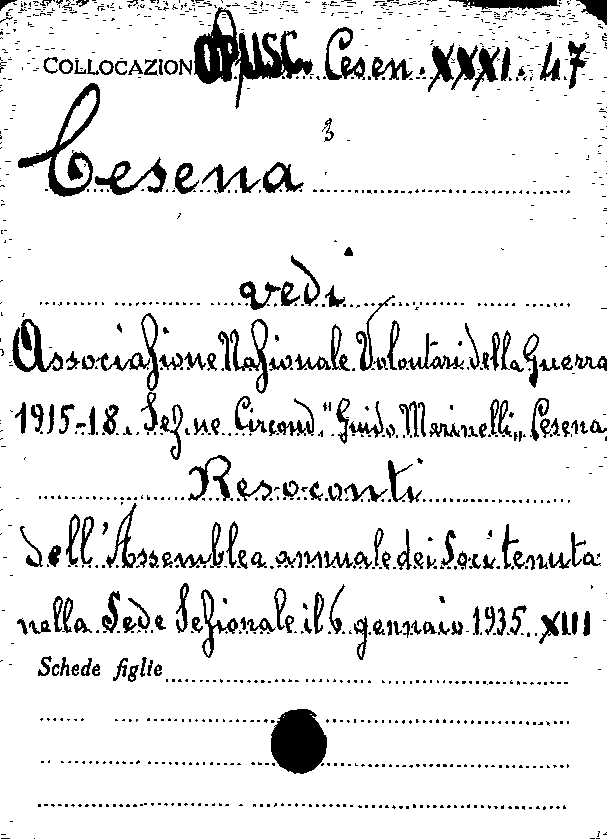 COLLOCAZION OPUSC. Cesen. XXXI. 47
3
Cesena
vedi
Associazione Nazionale Volontari della Guerra
1915-18. Sez.ne Circond. "Guido Marinelli„ Cesena,
Resoconti
dell'Assemblea annuale dei Soci tenuta
nella Sede Sezionale il 6 gennaio 1935. XIII
Schede figlie